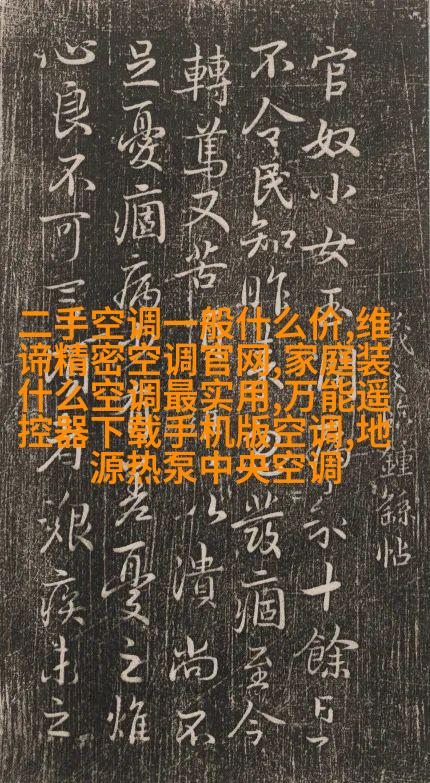 二手空调一般什么价,维
谛精密空调官网,家庭装
什么空调最实用,万能遥
控器下载手机版空调,地
源热泵中央空调
鍾繇帖
官奴小女玉十餘日
不令民知昨發痼至今
轉篤又苦以潰尚不
足憂痼病憂之燋
心良不可者艱疾未之